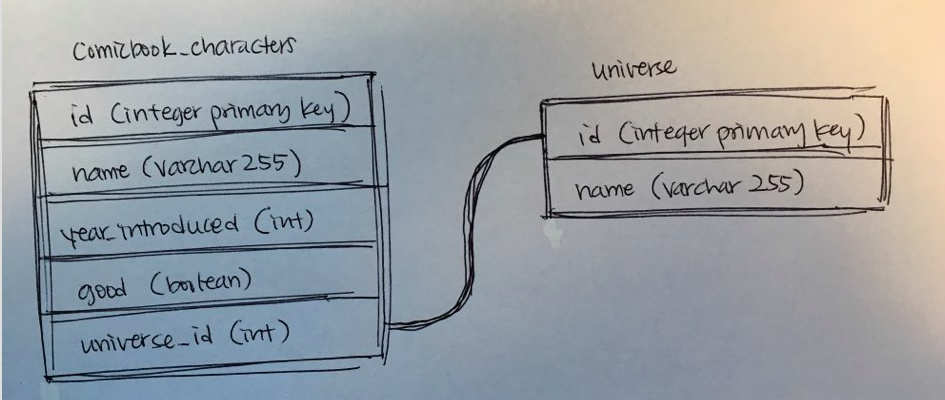 Comicbook_characters
id (integer primary key)
name (varchar 255)
year_introduced (int)
good (boolean)
universe_id (int)
universe
id (integer primary key)
name (varchar 255)